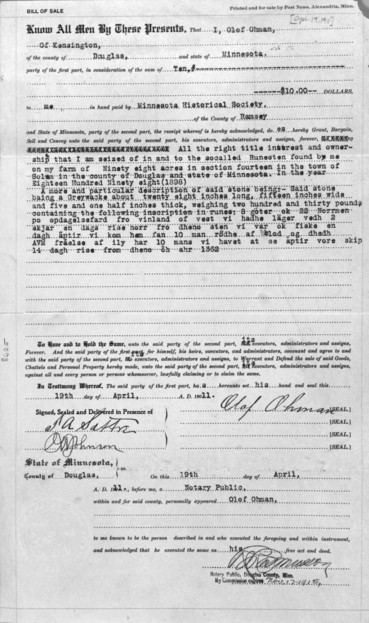 BILL OF SALE
Printed and for sale by Post News, Alexandria, Minn.
Know All Men By These Presents, That I, Olof Ohman,
Of Kensington,
of the county of Douglas, and state of Minnesota.
party of the first part, in consideration of the sum of Ten,
$10.00 DOLLARS,
to me in hand paid by Minnesota Historical Society,
of the County of Ramsey
and State of Minnesota, party of the second part, the receipt whereof is hereby acknowledge, do hereby Grant, Bargain,
Sell and Convey unto the said party of the second part, his executors, administrators and assigns, forever,
All the right title interest and owner-
ship that I am seized of in and to the socalled Runesten found by me
on my farm of Ninety eight acres in section fourteen in the town of
Solem in the county of Douglas and state of Minnesota. In the year
Eighteen Hundred Ninety eight(1898)
A more and particular description of said stone being:- Said stone
being a Greywacke about twenty eight inches long, fifteen inches wide
and five and one half inches thick, weighing two hundred and thirty pounds
containing the following inscription in runes: 8 göter ok 22 Norrmen
po opdagelsefard fro vinland of vest vi hadhe läger vedh 2
skjar en dags rise norr fro dheno sten vi var ok fiske en
dagh äptir vi kom hem fan 10 man rödhe af blod og dhedh
AVM fräelse af ily har 10 mans vi havet at se äptir vore skip
14 dagh rise from dheno öh ahr 1362
To Have and to Hold the Same, unto the said party of the second part, its executors, administrators and assigns,
Forever. And the said party of the first part, for himself, his heirs, executors and administrators, covenant and agree to and
with the said party of the second part, its executors, administrators and assigns, to Warrant and Defend the sale of said Goods,
Chattels and Personal Property hereby made, unto the said party of the second part, executors, administrators and assigns,
against all and every person or persons whomsoever, lawfully claiming or to claim the same.
In Testimony Whereof, The said party of the first part, has hereunto set his hand and seal this
19th day of April, A. D. 1911.
Signed, Sealed and Delivered in Presence of
Olof Ohman [SEAL]
[SEAL]
Johnson [SEAL]
[SEAL]
State of Minnesota,
County of Douglas, On this 19th day of April,
A. D. 11, before me, a Notary Public,
within and for said county, personally appeared Olof Ohman,
to me known to be the person described in and who executed the foregoing and within instrument,
and acknowledged that he executed the same as his free act and deed.
Notary Public, Douglas County, Minn.
My Commission expires